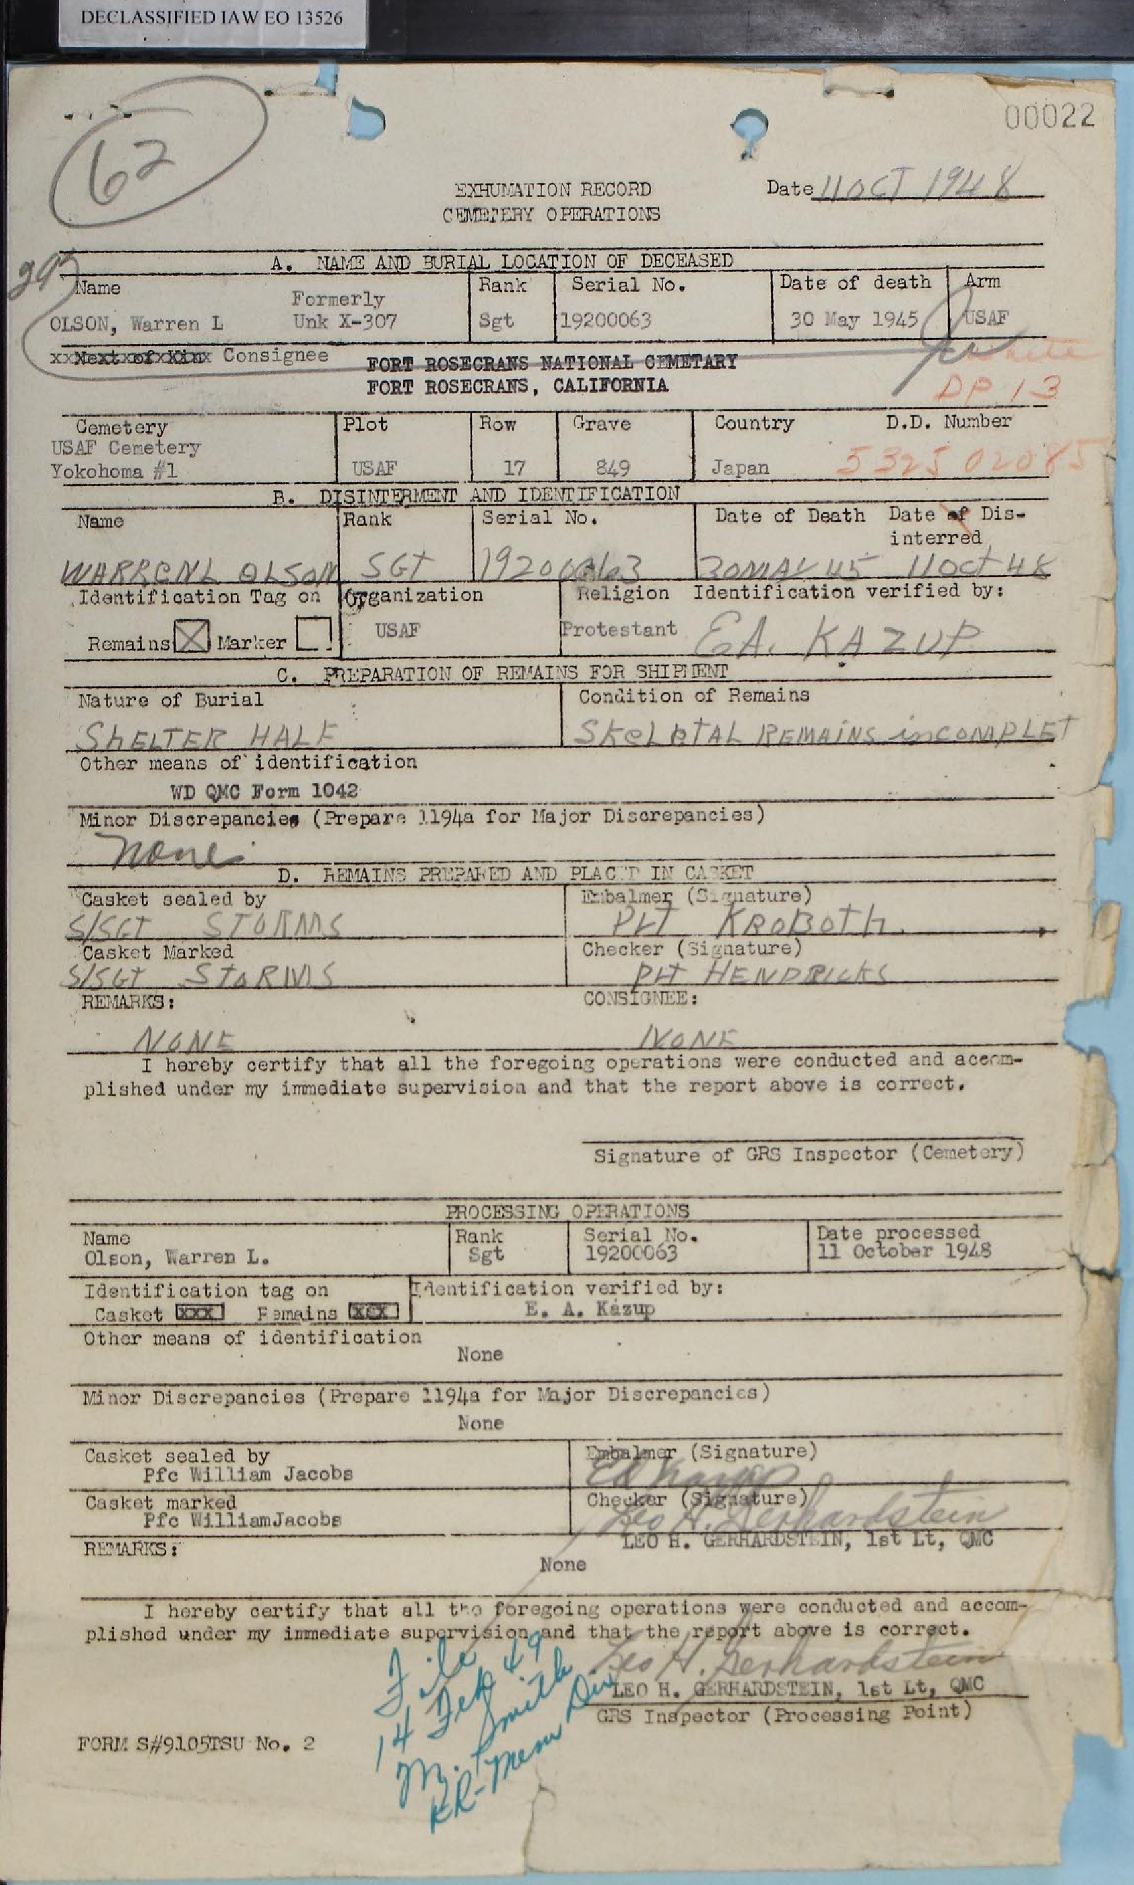 DECLASSIFIED IAW EO 13526
00022
62
EXHUMATION RECORD
CEMETERY OPERATIONS
Date 11 OCT 1948
A. NAME AND BURIAL LOCATION OF DECEASED
Name Formerly Rank Serial No. Date of death Arm
OLSON, Warren L Unk X-307 Sgt 19200063 30 May 1945 USAF
xxNextxofxKinx Consignee FORT ROSECRANS NATIONAL CEMETARY
FORT ROSECRANS, CALIFORNIA
DP 13
Cemetery Plot Row Grave Country D.D. Number
USAF Cemetery
Yokohoma #1 USAF 17 849 Japan 5325 02085
B. DISINTERMENT AND IDENTIFICATION
Name Rank Serial No. Date of Death Date of Dis-
interred
WARREN L OLSON SGT 19200063 30 MAY 45 11 Oct 48
Identification Tag on Organization Religion Identification verified by:
Remains Marker USAF Protestant E.A. KAZUP
C. PREPARATION OF REMAINS FOR SHIPMENT
Nature of Burial Condition of Remains
SHELTER HALF SKELETAL REMAINS inCOMPLET
Other means of identification
WD QMC Form 1042
Minor Discrepancies (Prepare 1194a for Major Discrepancies)
none
D. REMAINS PREPARED AND PLACED IN CASKET
Casket sealed by Embalmer (Signature)
S/SGT STORMS KROBOTH
Casket Marked Checker (Signature)
S/SGT STORMS HENDRICKS
REMARKS: CONSIGNEE:
NONE NONE
I hereby certify that all the foregoing operations were conducted and accom-
plished under my immediate supervision and that the report above is correct.
Signature of GRS Inspector (Cemetery)
PROCESSING OPERATIONS
Name Rank Serial No. Date processed
Olson, Warren L. Sgt 19200063 11 October 1948
Identification tag on Identification verified by:
Casket xxx Remains xxx E. A. Kazup
Other means of identification
None
Minor Discrepancies (Prepare 1194a for Major Discrepancies)
None
Casket sealed by Embalmer (Signature)
Pfc William Jacobs
Casket marked Checker (Signature)
Pfc WilliamJacobs Leo H. Gerhardstein
LEO H. GERHARDSTEIN, 1st Lt, QMC
REMARKS:
None
I hereby certify that all the foregoing operations were conducted and accom-
plished under my immediate supervision and that the report above is correct.
Leo H. Gerhardstein
LEO H. GERHARDSTEIN, 1st Lt, QMC
GRS Inspector (Processing Point)
File
14 Feb 49
M. Smith
RR-Mem Div
FORM S#9105TSU No. 2